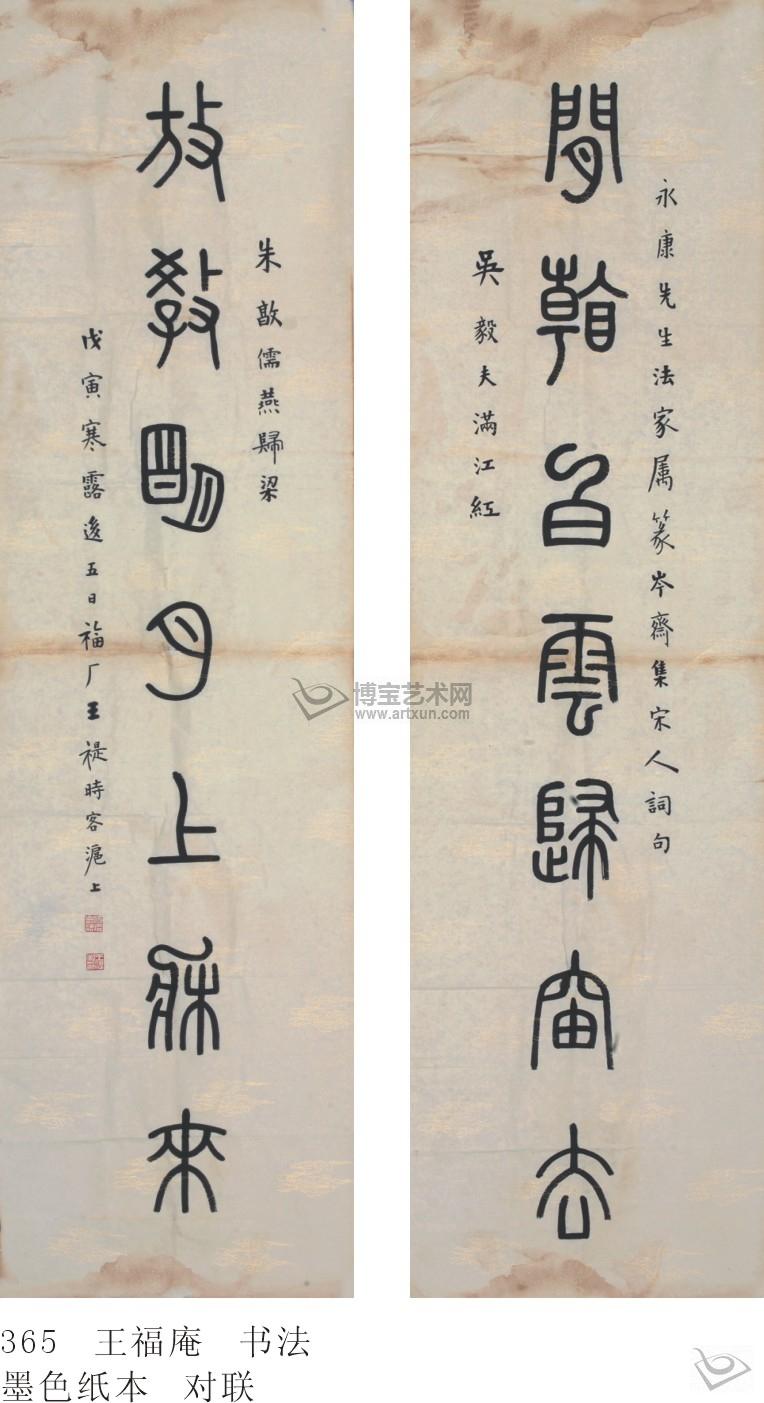 永康先生法家属篆岑齋集宋人詞句
閒看白雲歸岫去
吳毅夫滿江紅
朱敦儒燕歸梁
放教明月上牀來
戊寅寒露後五日福厂王禔時客滬上
博宝艺术网
www.artxun.com
365 王福庵 书法
墨色纸本 对联